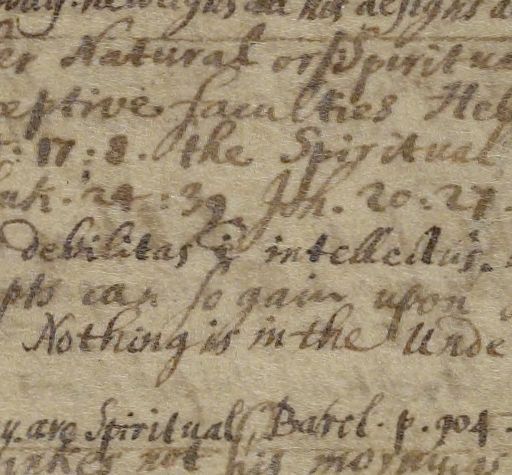 his designs
Natural or Spiritu
eptive faculties Heb
: 17 : 8 . the Spiritual
uk. 24 : 39 Joh. 20 : 27.
debilitas è intellectus.
pts can so gain upon
Nothing is in the Unde
y. are Spiritual, Batel. p. 904.
not his